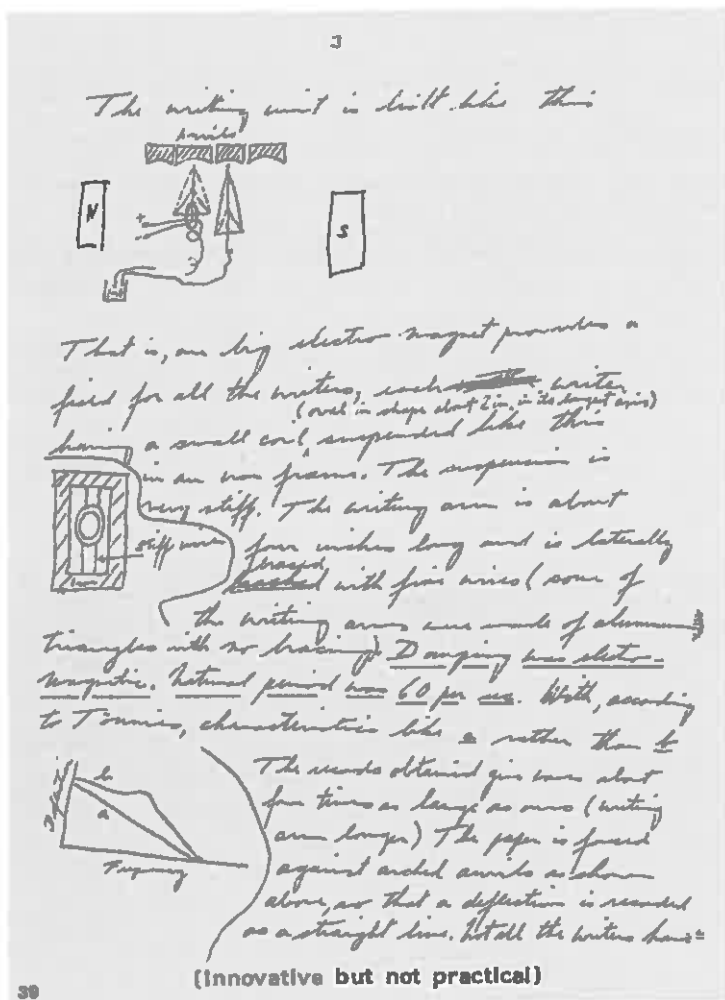 3
The writing unit is built like this
Anvils
N
S
+
-
That is, one big electro-magnet provides a
field for all the writers, each writer
(oval in shape about 2 in. in its longest axis)
having a small coil suspended like this
in an iron frame. The suspension is
very stiff. The writing arm is about
stiff wire
four inches long and is laterally
braced
with fine wires (some of
Iron
the writing arms were made of aluminum
triangles with no bracing) Damping was electro-
magnetic. Natural period was 60 per sec. With, according
to Tönnies, characteristics like a rather than b
The records obtained give waves about
b
four times as large as ours (writing
a
arm longer) The paper is forced
Frequency
against arched anvils as shown
above, so that a deflection is recorded
as a straight line. Not all the writers have
(Innovative but not practical)
39